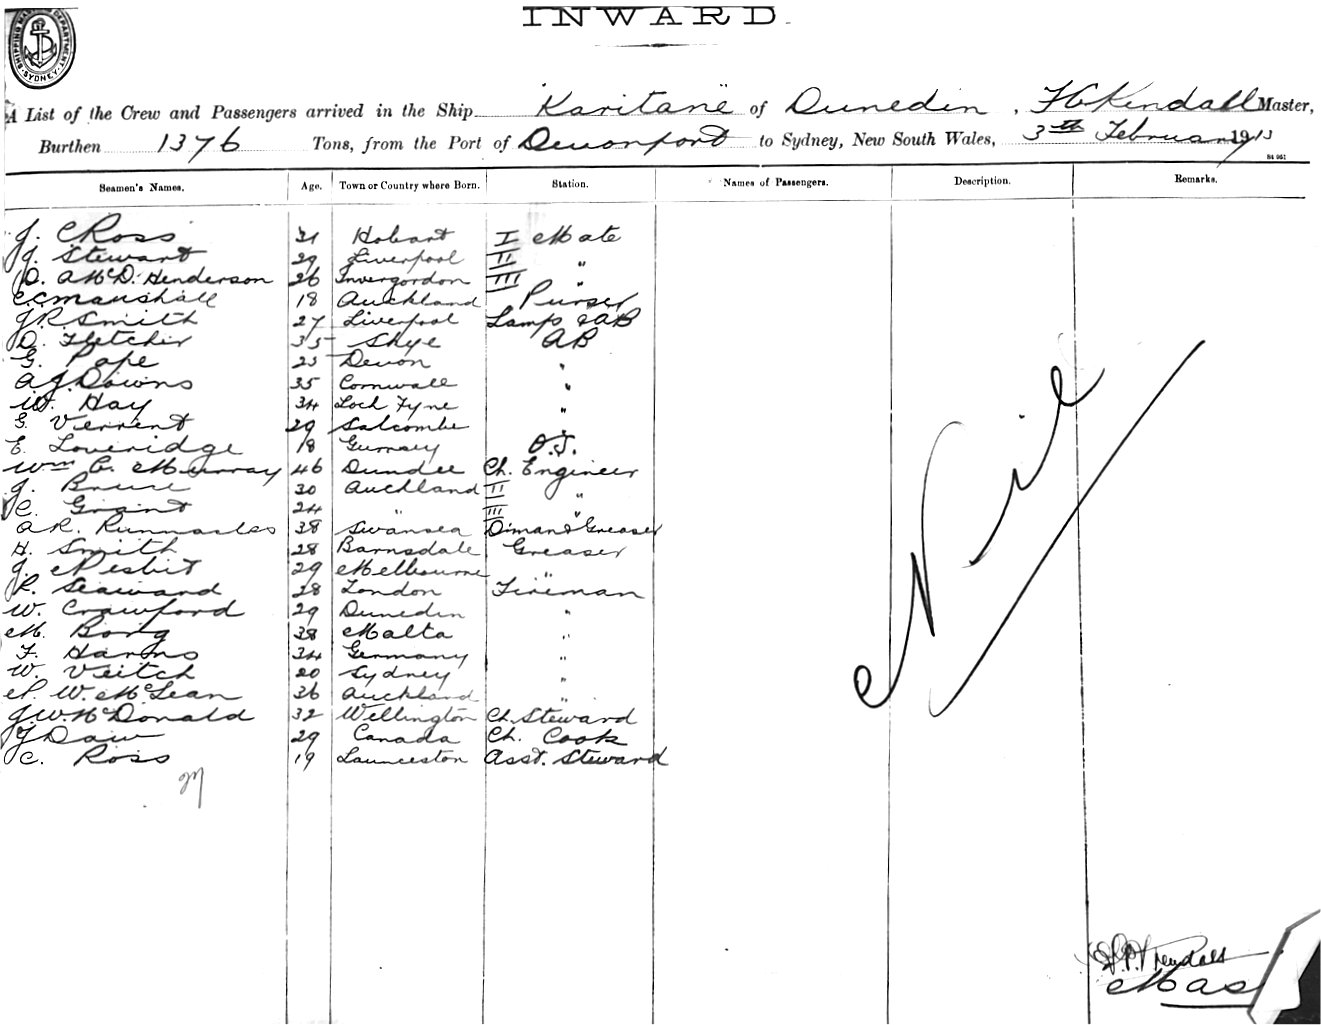 SHIPPING MASTER'S DEPARTMENT SYDNEY
INWARD.
A List of the Crew and Passengers arrived in the Ship Karitane of Dunedin, Kendall Master,
Burthen 1376 Tons, from the Port of Devonport to Sydney, New South Wales, 3th February 1913
Seamen's Names. Age. Town or Country where Born. Station. Names of Passengers. Description. Remarks.
J. C Ross 31 Hobart I Mate
J. Stewart 29 Liverpool II "
D. A McD. Henderson 26 Invergordon III "
C.C Marshall 18 Auckland Purser
J R Smith 27 Liverpool Lamps & AB
D. Fletcher 35 Skye AB
G. Pope 23 Devon "
A J. Downs 35 Cornwall "
W. Hay 34 Loch Fyne "
G. Verrent 29 Salcombe "
E. Loveridge 18 Gurnsey O.S.
Wm C. Murray 46 Dundee Ch. Engineer
J. Bruce 30 Auckland II "
C. Grant 24 " III "
A R. Runnacles 38 Swansea Dman & Greaser
H. Smith 28 Barnsdale Greaser
J. Nesbit 29 Melbourne "
R. Seaward 28 London Fireman
W. Crawford 29 Dunedin "
M. Borg 38 Malta "
F. Harms 34 Germany "
W. Veitch 20 Sydney "
N. W. McLean 36 Auckland "
J. W. McDonald 32 Wellington Ch. Steward
J Daw 29 Canada Ch. Cook
C. Ross 19 Launceston Asst. Steward
Nil
Kendall
Mas